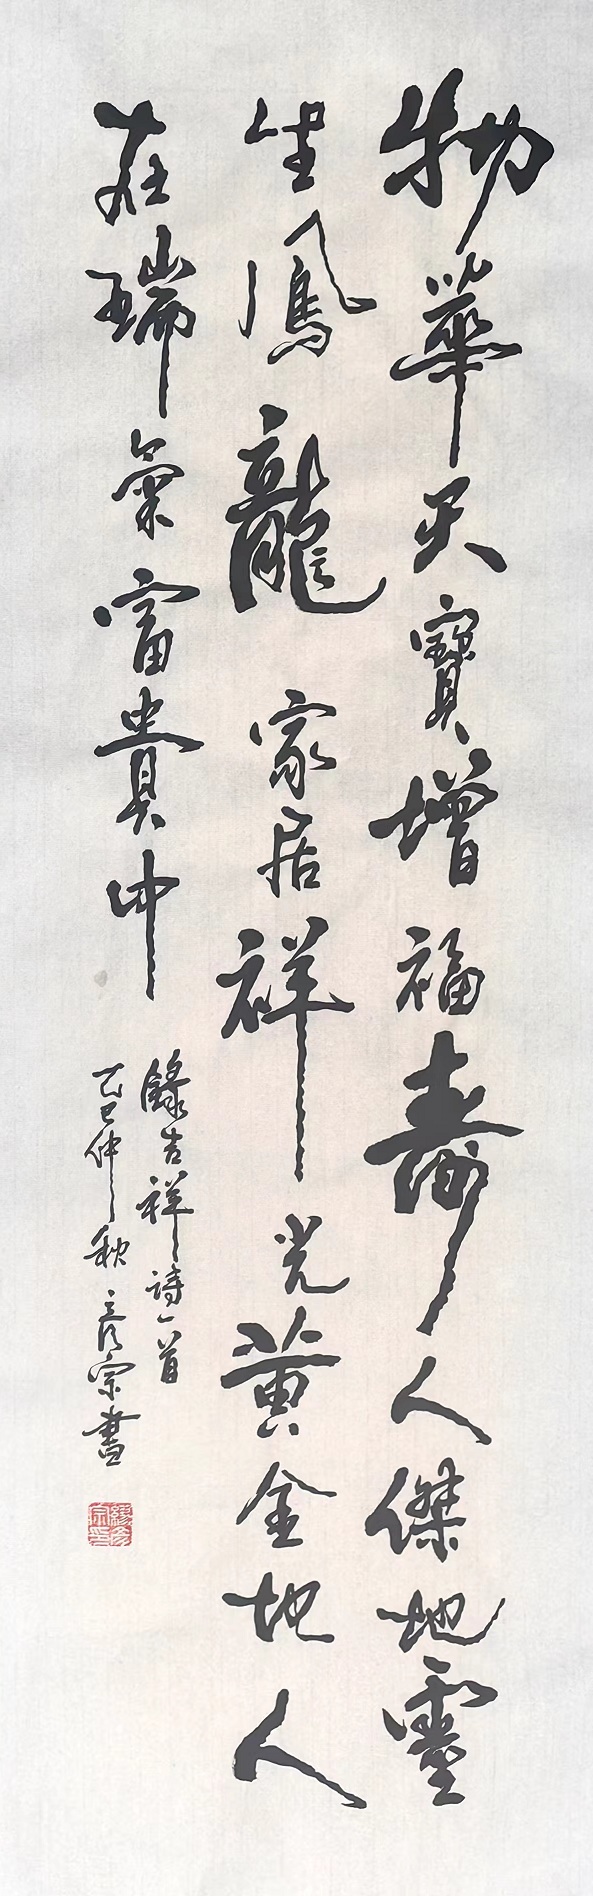 物華天寶增福壽人傑地靈
生鳳龍家居祥光黃金地人
在瑞氣富貴中
錄吉祥詩一首
乙巳仲秋彥宗書